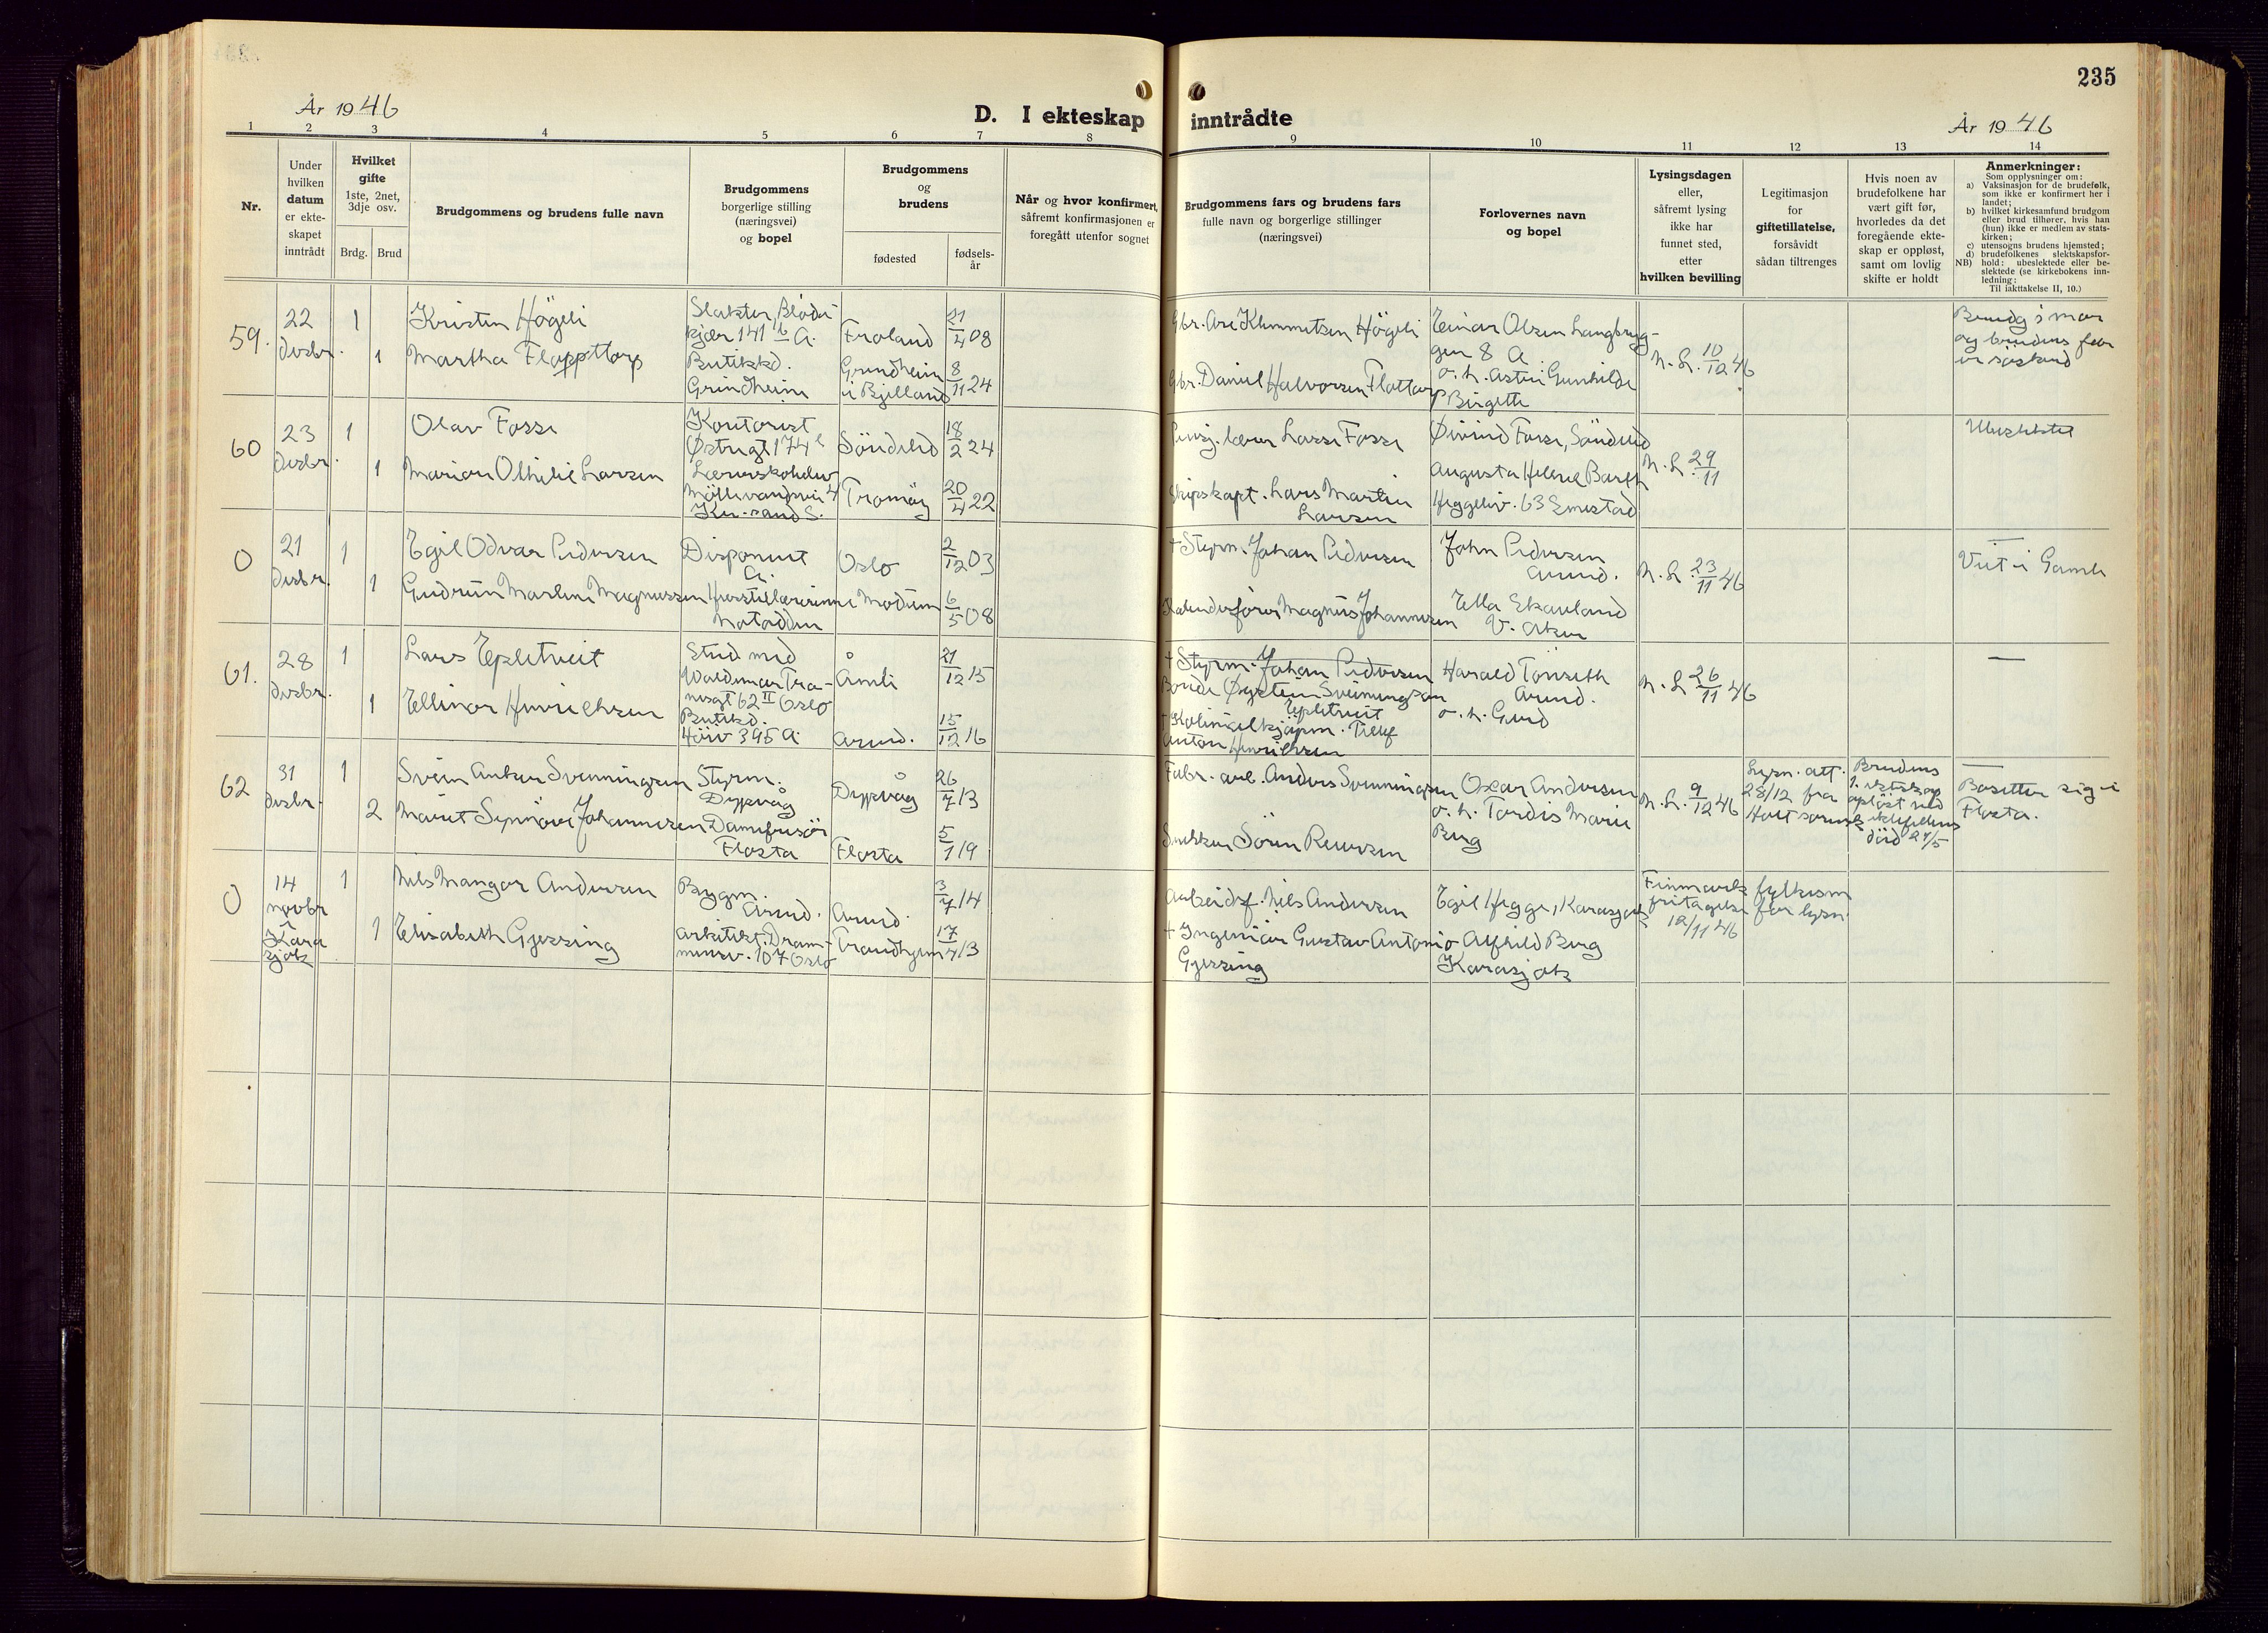 235
År 1946
D. I ekteskap
inntrådte
År 1946
1 2 3 4 5 6 7 8 9 10 11 12 13 14
Nr.
Under
hvilken
datum
er ekte-
skapet
inntrådt
Hvilket
gifte
1ste, 2net,
3dje osv.
Brdg.
Brud
Brudgommens og brudens fulle navn
Brudgommens
borgerlige stilling
(næringsvei)
og bopel
Brudgommens
og
brudens
fødested
fødsels-
år
Når og hvor konfirmert,
såfremt konfirmasjonen er
foregått utenfor sognet
Brudgommens fars og brudens fars
fulle navn og borgerlige stillinger
(næringsvei)
Forlovernes navn
og bopel
Lysingsdagen
eller,
såfremt lysing
ikke har
funnet sted,
etter
hvilken bevilling
Legitimasjon
for
giftetillatelse,
forsåvidt
sådan tiltrenges
Hvis noen av
brudefolkene har
vært gift før,
hvorledes da det
foregående ekte-
skap er oppløst,
samt om lovlig
skifte er holdt
Anmerkninger:
Som opplysninger om:
a) Vaksinasjon for de brudefolk,
som ikke er konfirmert her i
landet;
b) hvilket kirkesamfund brudgom
eller brud tilhører, hvis han
(hun) ikke er medlem av stats-
kirken;
c) utensogns brudens hjemsted;
d) brudefolkenes slektskapsfor-
hold: ubeslektede eller be-
slektede (se kirkebokens inn-
ledning:
NB) Til iakttakelse II, 10.)
59.
22
desbr.
1
1
Kristen Högeli
Martha
Slakter, Blöde
kjær 141 b A.
Butikkd.
Grindheim
Froland
Grindheim
i Bjelland
31/4 08
8/11 24
Gbr. Are Klemmetsen Högeli
Gbr. Daniel Halvorsen Flottorp
Einar Olsen Langbryg-
gen 8 A.
o. h. Astri Gunhilde
Birgette
N. L. 10/12 46
Brudg's mor
og brudens far
er söskend
60
23
desbr.
1
1
Olav Fosse
Marion Othilie Larsen
Kontorist
Østregt 174
Lærerskoleelev
Möllevandsvei 4
Kr.sand S.
Söndeled
Tromöy
18/2 24
20/4 22
Pensj. lærer Lasse Fosse
Skipskapt. Lars Martin
Larsen
Øivind Fosse, Söndeled
Augusta Helene Barth
Heggeliv. 63 Smestad
N. L. 29/11
Ubeslektet
0
21
desbr.
1
1
Egil Odvar Pedersen
Gudrun Marlene Magnussen
Disponent
A.
Notodden
Oslo
Modum
2/12 03
6/5 08
† Styrm. Johan Pedersen
Magnus Johannesen
John Pedersen
Arend.
Ella Skauland
V. Aker
N. L. 23/11 46
Viet i Gamle
61.
28
desbr.
1
1
Lars Epletveit
Ellinor Henriksen
Stud med
Waldemar Tra-
nesgt 62 II Oslo
Butikkd.
Höiv 395 A.
Åmli
Arend.
21/12 15
15/12 16
† Styrm. Johan Pedersen
Bonde Øystein Sveinungson
Epletveit
Kolonialkjøpm. Tellef
Anton Henriksen
Harald Tönseth
Arend.
o. h. Gerd
N. L. 26/11 46
—
62
31
desbr.
1
2
Svein Anker Svenningsen
Marit Synnöve Johannesen
Styrm.
Dypvåg
Damefrisör
Flosta
Dypvåg
Flosta
26/7 13
5/1 19
Fabr. arb. Anders Svenningsen
Snekker Sören Reiersen
Oscar Andersen
o. h. Tordis Marie
Berg
N. L. 9/12 46
Lysn. att.
28/12 fra
Holt sorensk.
Brudens
1. ekteskap
oplöst ved
ektefellens
död 24/5
—
Bosetter sig i
Flosta.
0
14
novbr
i
Kara
sjok
1
1
Nils Mangor Andersen
Elisabeth Gjessing
Bygm.
Arend.
Arkitekt. Dram-
mensv. 107 Oslo
Arend.
Trondhjem
3/7 14
17/4 13
Arbeidsf. Nils Andersen
† Ingeniör Gustav Antonio
Gjessing
Egil Hegge, Karasjok
Alfhild Berg
Karasjok
Finnmark fylkesm
fritagelse for lysn.
12/11 46